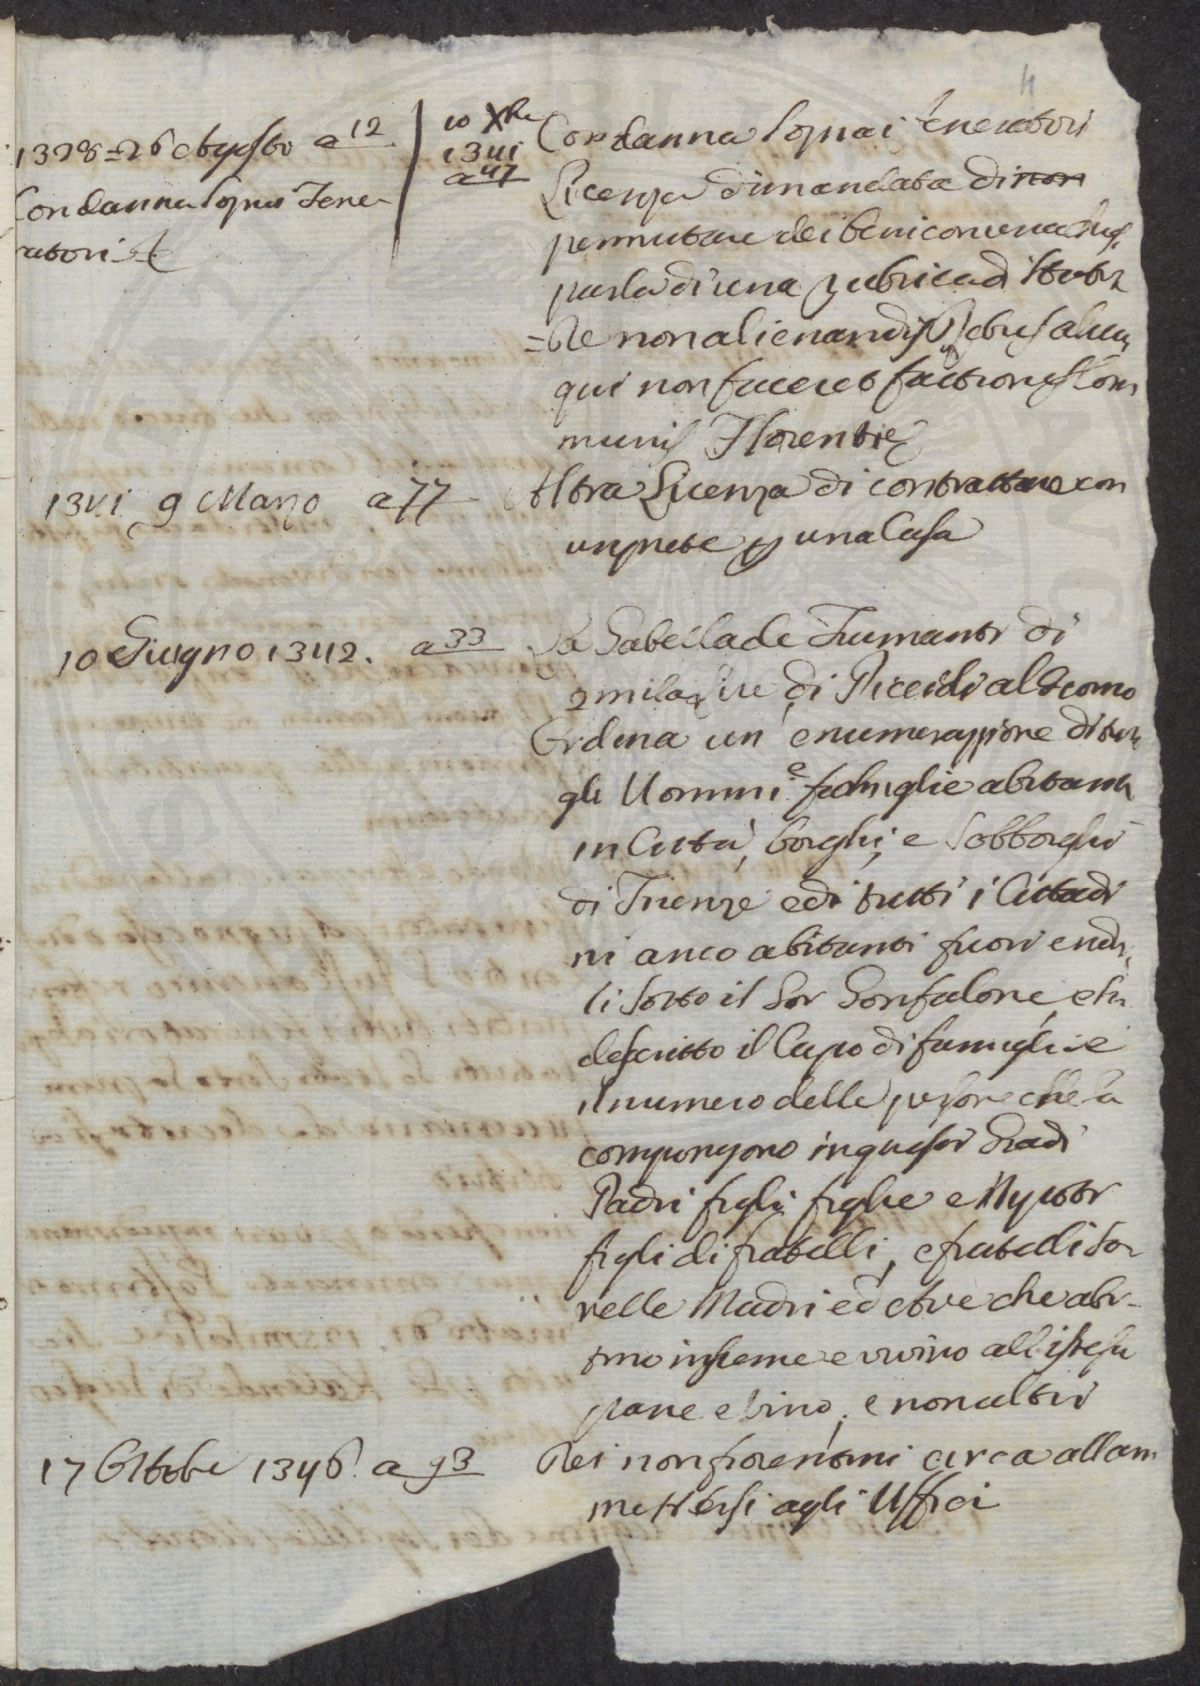 4
1328 = 26 Agosto a 12
Condanna sopra i Fene
ratori
10 Xbre
1341
a 47
Condanna sopra i feneratori
Licenza dimandata di non
permutare dei beni con una
parla di una rubrica di Stat
= De non alienandis rebus alicui
qui non faceret factiones Com
munis Florentie
1341 9 Marzo a 77
Altra Licenza di contrattare con
un prete per una Casa
10 Giugno 1342. a 33
La Gabella de Fumanti di
2 mila lire di Piccioli al
Ordina un' enumerazzione di tutti
gli Uomini e famiglie abitanti
in Città, borghi, e Sobborghi
di Firenze e di tutti i Cittadi
ni anco abitanti fuori
li sotto il lor Gonfalone, e sia
descritto il Capo di famiglia e
il numero delle persone che la
compongono in questi Gradi
Padri figli figlie e Nipoti
figli di fratelli, e fratelli So
relle Madri ed Ave che abi-
tino insieme e vivino all istesso
pane e vino, e non altri
17 Ottobre 1346. a 93
Dei non fiorentini circa all am
mettersi agli Uffici